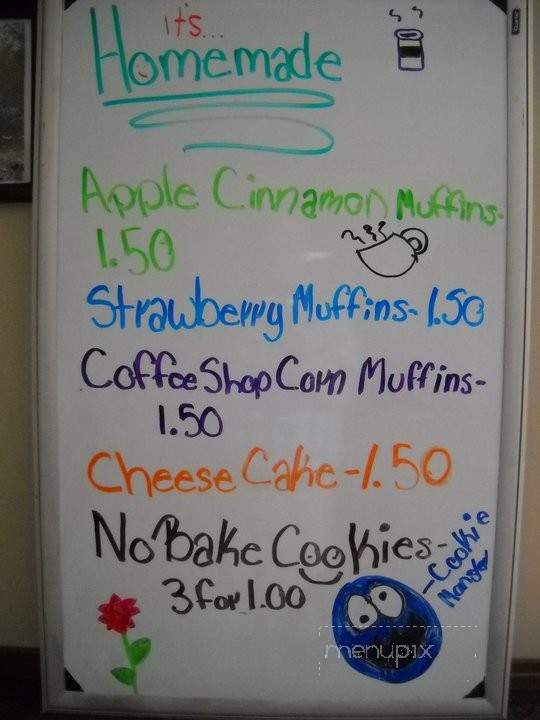 it's...
Homemade
Apple Cinnamon Muffins-
1.50
Strawberry Muffins- 1.50
Coffee Shop Corn Muffins-
1.50
Cheese Cake -1.50
No Bake Cookies-
3 for 1.00
-Cookie
Monster
menupix